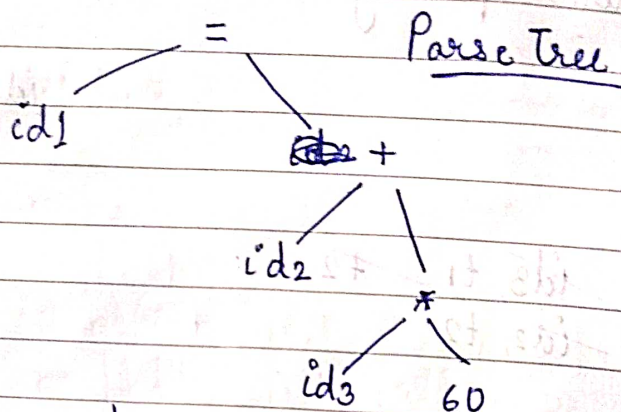 =
Parse Tree
id1
+
id2
*
id3 60